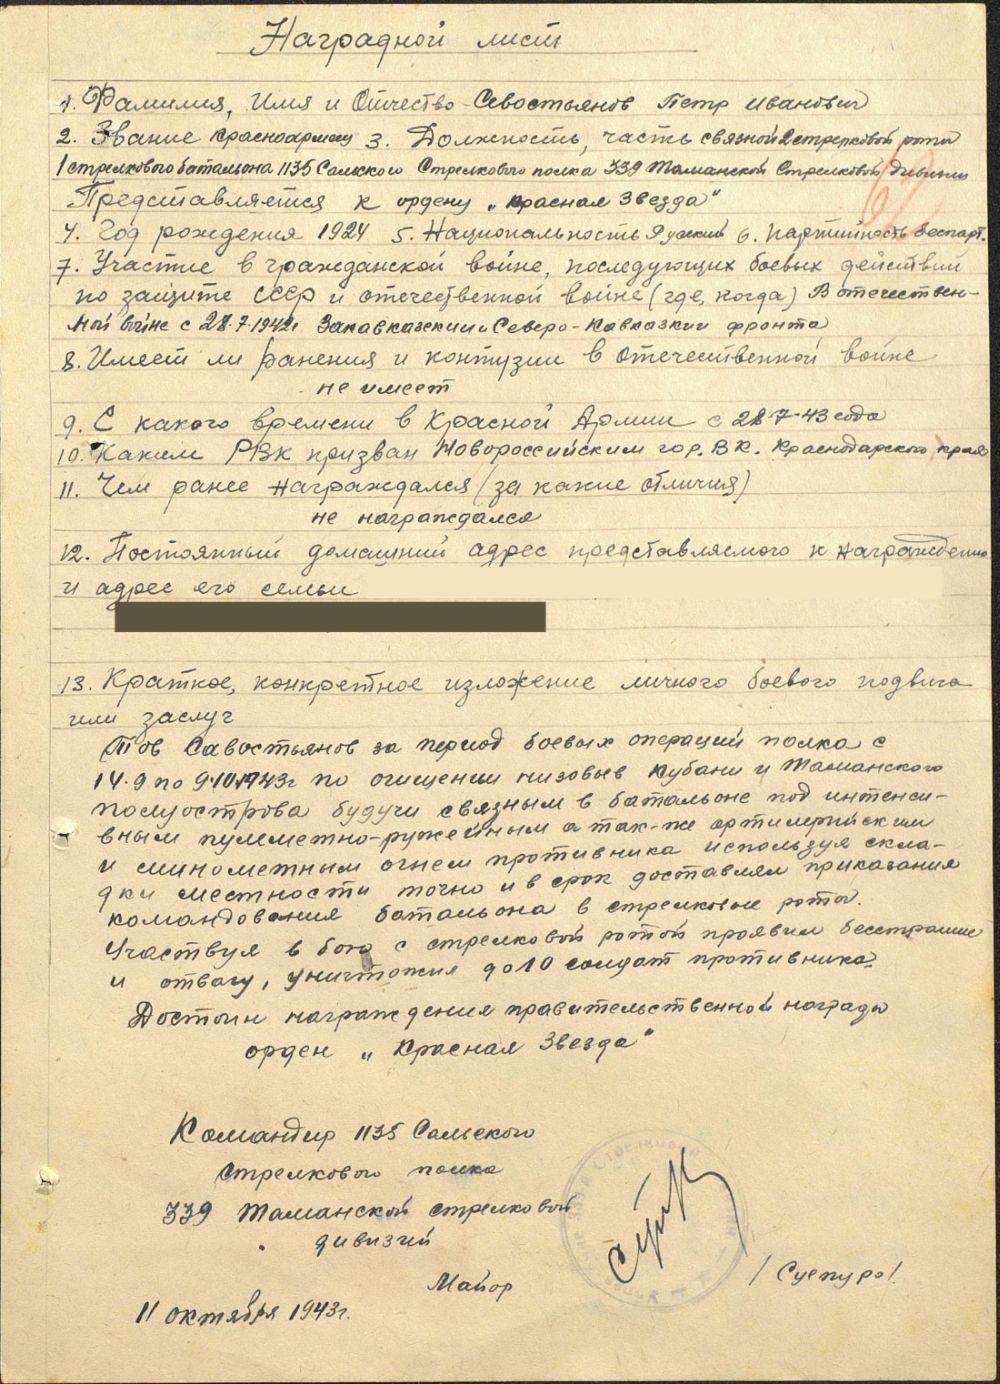 Наградной лист
1. Фамилия, Имя и Отчество Севостьянов Петр Иванович
2. Звание красноармеец 3. Должность, часть связной 2 стрелковой роты
1 стрелкового батальона 1135 Сальского Стрелкового полка 339 Таманской Стрелковой дивизии
Представляется к ордену „Красная Звезда"
4. Год рождения 1924 5. Национальность Русский 6. Партийность беспарт.
7. Участие в гражданской войне, последующих боевых действий
по защите СССР и отечественной войне (где, когда) В отечествен-
ной войне с 28.7.1942г Закавказский и Северо-Кавказкий фронта
8. Имеет ли ранения и контузии в отечественной войне
не имеет
9. С какого времени в Красной Армии с 28.7-43 года
10. Каким РВК призван Новороссийским гор. В.К. Краснодарского края
11. Чем ранее награждался (за какие отличия)
не награждался
12. Постоянный домашний адрес представляемого к награждению
и адрес его семьи
13. Краткое, конкретное изложение личного боевого подвига
или заслуг
Тов Савостьянов за период боевых операций полка с
14.9 по 9.10.1943г по очищении низовьев Кубани и Таманского
полуострова будучи связным в батальоне под интенси-
вным пулеметно-ружейным а так-же артилерийским
и минометным огнем противника используя скла-
дки местности точно и в срок доставлял приказания
командования батальона в стрелковые роты.
Участвуя в бою с стрелковой ротой проявил бесстрашие
и отвагу, уничтожил до 10 солдат противника.
Достоин награждения правительственной награды
орден „Красная Звезда"
Командир 1135 Сальского
стрелкового полка
339 Таманской стрелковой
дивизий
Майор
/Суепуро/.
11 октября 1943г.